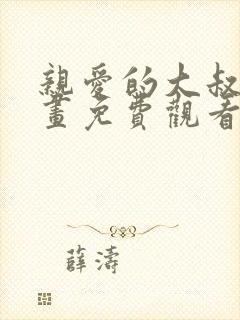 親愛的大叔
畫免費觀看
薛濤